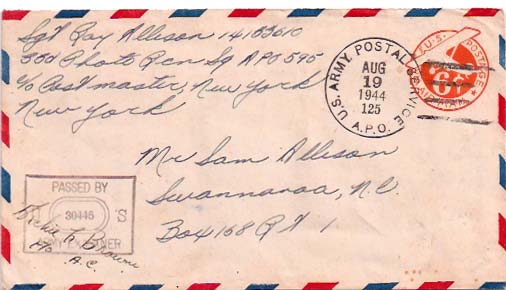 Sgt Ray Allison 14153610
33d Photo Rcn Sq APO 595
c/o Postmaster, New York
New York
U.S. ARMY. POSTAL SERVICE
AUG
19
1944
125
A.P.O.
U.S. POSTAGE
6¢
AIR MAIL
Mr Sam Allison
Swannanoa, N.C.
Box 168 Rt 1
PASSED BY
30446 'S
ARMY EXAMINER
A.C.